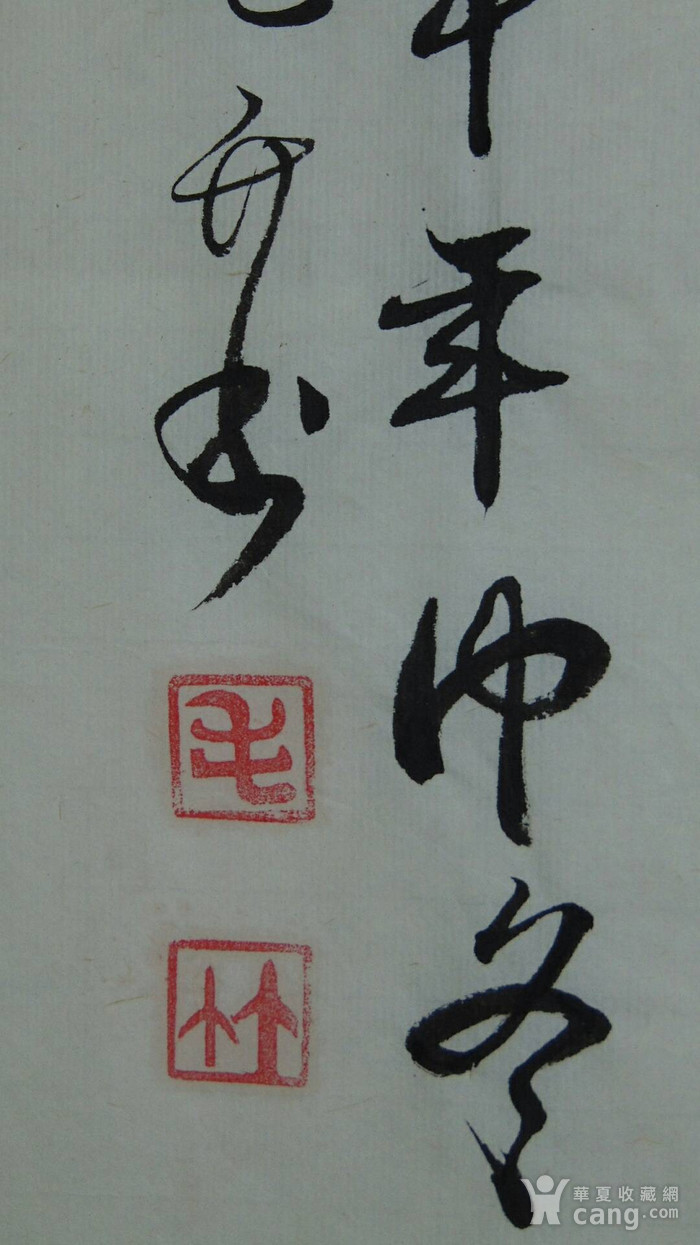 年仲冬
竹书
毛
竹
華夏收藏網
cang.com